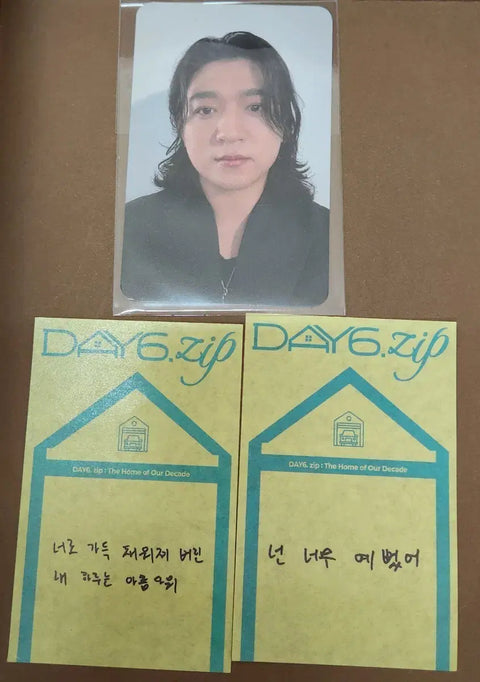 DAY6.zip
DAY6. zip : The Home of Our Decade
너로 가득 채워져 버린
내 하루는 아름다워
DAY6.zip
DAY6. zip : The Home of Our Decade
넌 너무 예뻤어